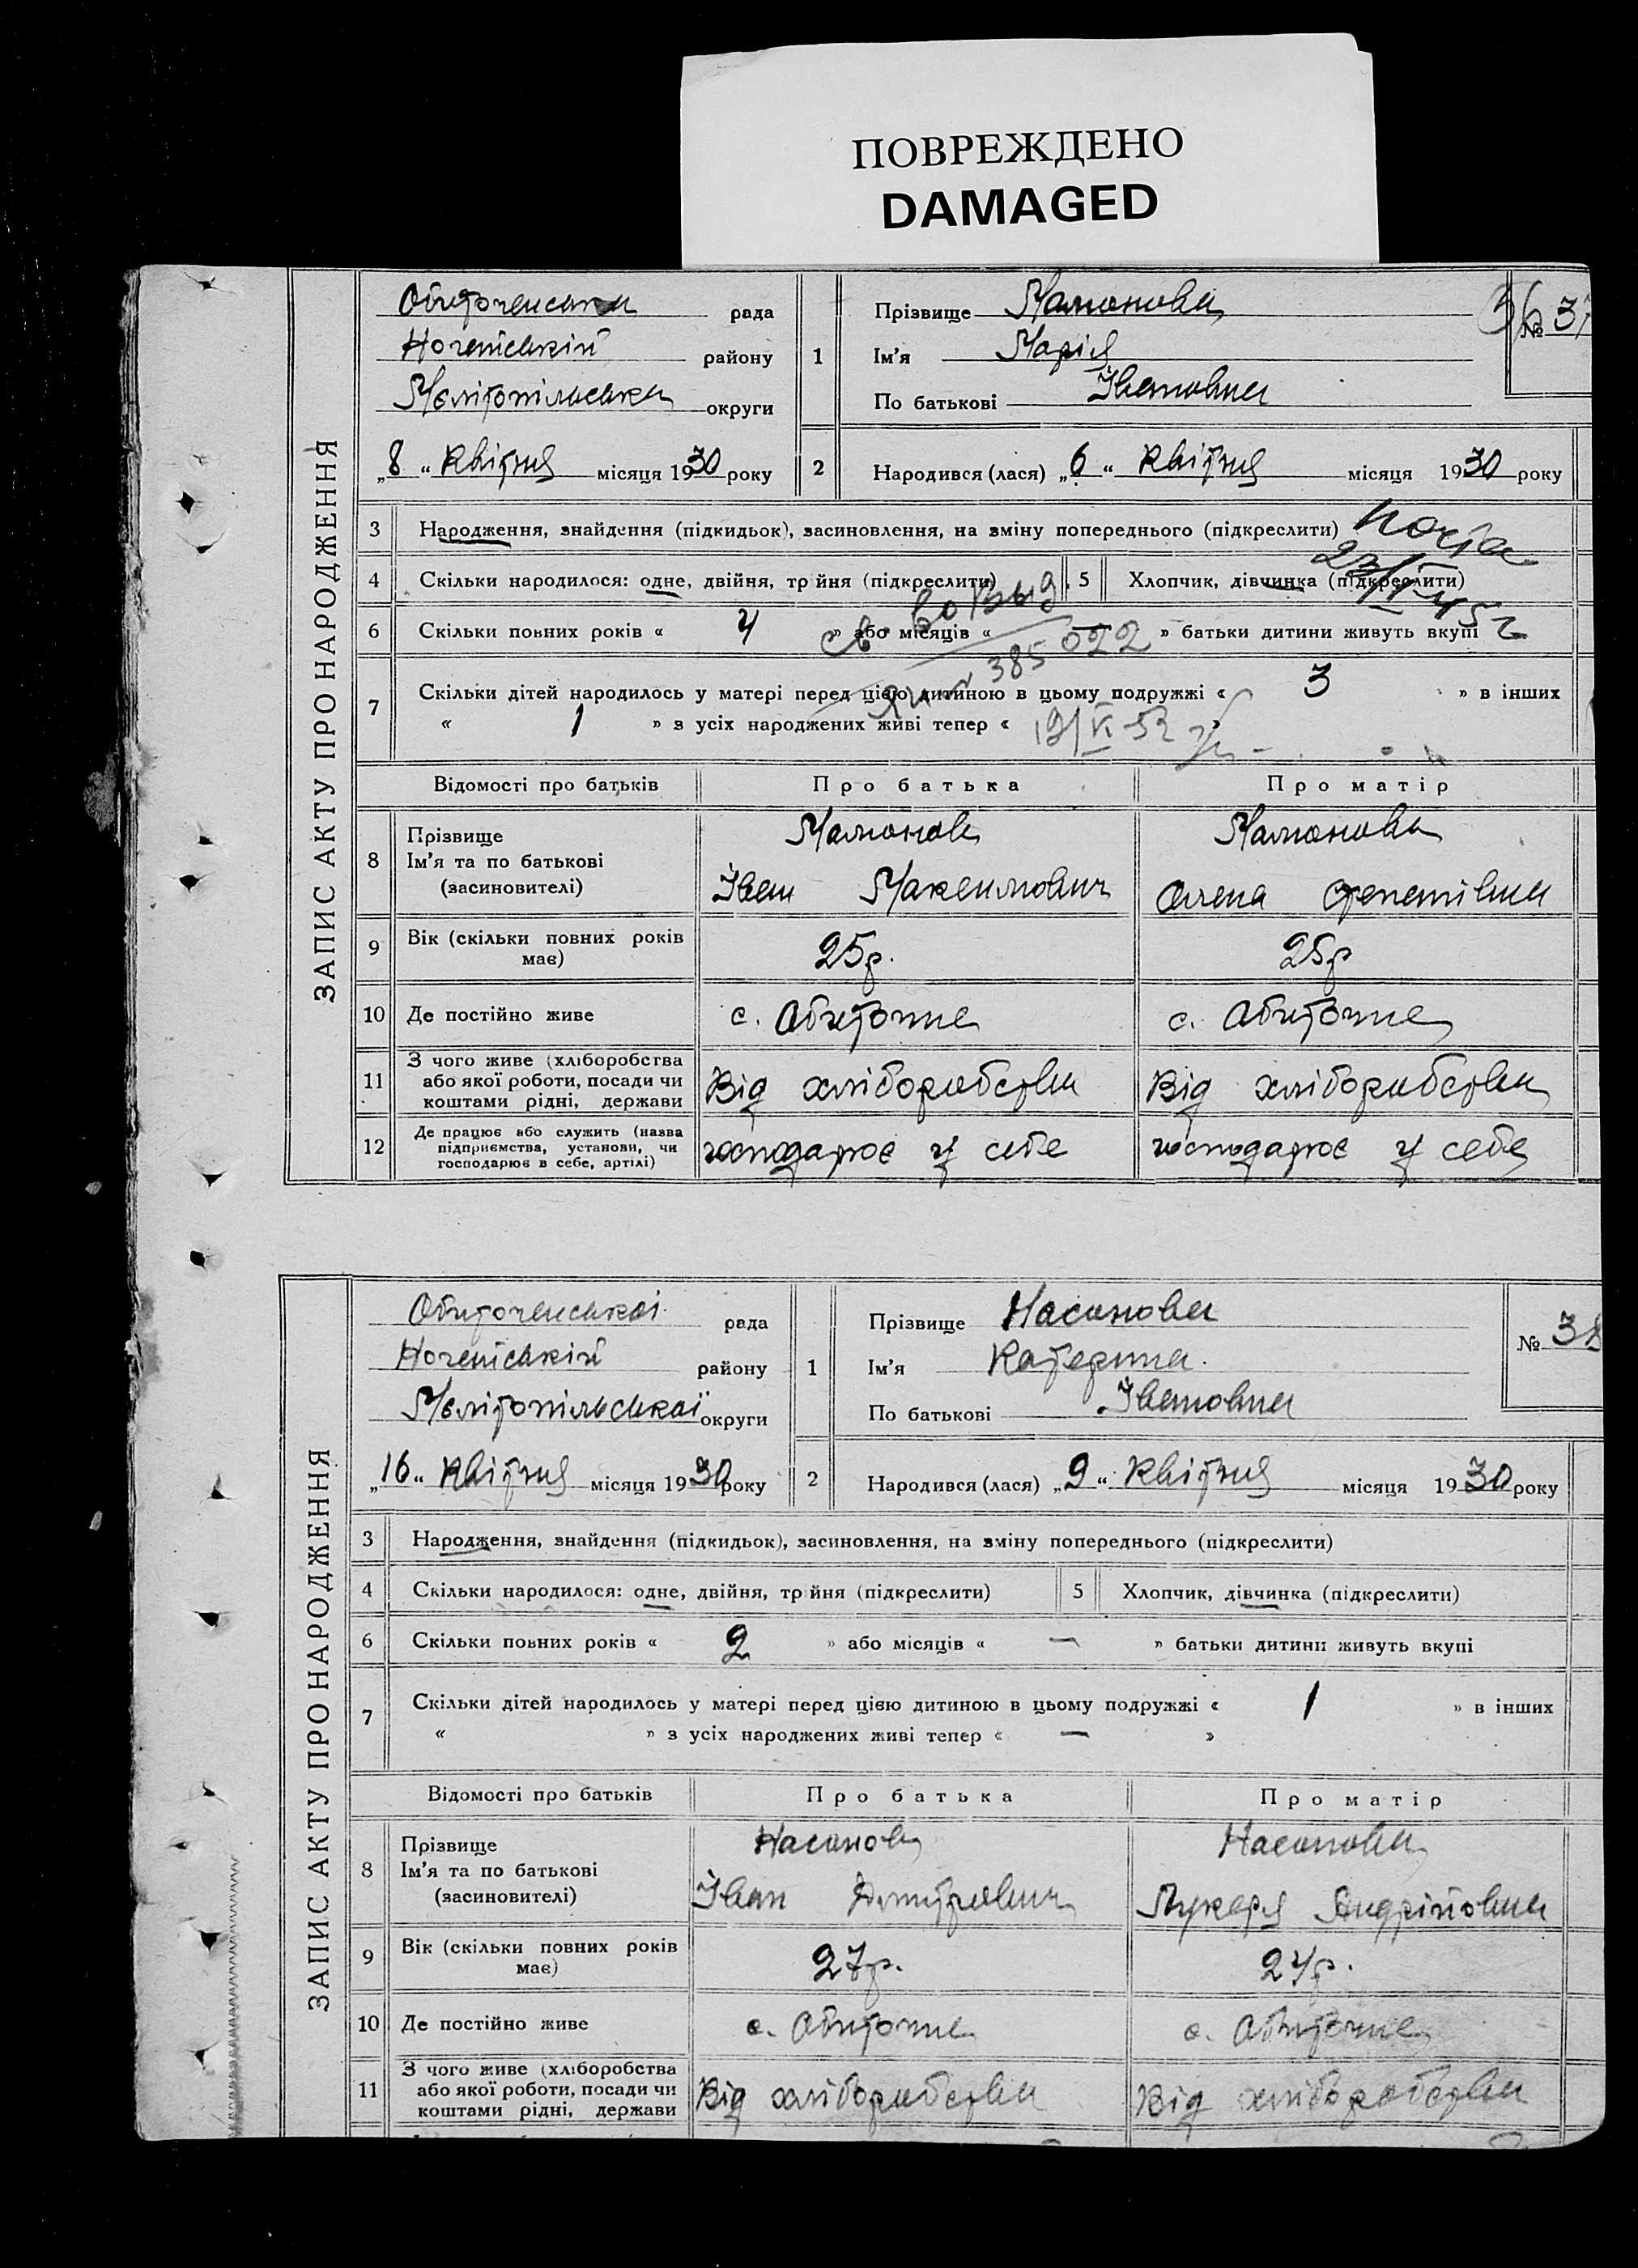 ПОВРЕЖДЕНО
DAMAGED
ЗАПИС АКТУ ПРО НАРОДЖЕННЯ
Обиточенська рада
району
Мелітопільська округи
„8“ Квітня місяця 1930 року
1
Прізвище
Ім'я Марія
По батькові Івановна
№ 37
2
Народився (лася) „6“ Квітня місяця 1930 року
3 Народження, знайдення (підкидьок), засиновлення, на зміну попереднього (підкреслити)
4 Скільки народилося: одне, двійня, трійня (підкреслити) 5 Хлопчик, дівчинка (підкреслити)
6 Скільки повних років « 4 » або місяців « — » батьки дитини живуть вкупі
385022
7 Скільки дітей народилось у матері перед цією дитиною в цьому подружжі « 3 » в інших
« 1 » з усіх народжених живі тепер « »
Відомості про батьків Про батька Про матір
8 Прізвище
Ім'я та по батькові Іван Максимович Олена
(засиновителі)
9 Вік (скільки повних років має) 25р. 25р
10 Де постійно живе с. Обиточне с. Обиточне
11 З чого живе (хліборобства або якої роботи, посади чи коштами рідні, держави Від хліборобства Від хліборобства
12 Де працює або служить (назва підприємства, установи, чи господарює в себе, артілі) господарює у себе господарює у себе
ЗАПИС АКТУ ПРО НАРОДЖЕННЯ
Обиточенської рада
району
Мелітопільської округи
„16“ Квітня місяця 1930 року
1
Прізвище Насонова
Ім'я Катерина.
По батькові Івановна
№ 38
2
Народився (лася) „9“ Квітня місяця 1930 року
3 Народження, знайдення (підкидьок), засиновлення, на зміну попереднього (підкреслити)
4 Скільки народилося: одне, двійня, трійня (підкреслити) 5 Хлопчик, дівчинка (підкреслити)
6 Скільки повних років « 2 » або місяців « — » батьки дитини живуть вкупі
7 Скільки дітей народилось у матері перед цією дитиною в цьому подружжі « 1 » в інших
« » з усіх народжених живі тепер « — »
Відомості про батьків Про батька Про матір
8 Прізвище Насонов Насонова
Ім'я та по батькові Іван Дмитрович Лукеря Андрійовна
(засиновителі)
9 Вік (скільки повних років має) 27р. 24р.
10 Де постійно живе с. Обиточне с. Обиточне
11 З чого живе (хліборобства або якої роботи, посади чи коштами рідні, держави Від хліборобства Від хліборобства